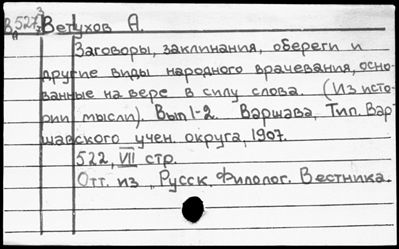 В 527 Ветухов А.
Заговоры, заклинания, обереги и
другие виды народного врачевания, осно-
ванные на вере в силу слова. (Из исто-
рии мысли). Вып 1-2. Варшава, Тип. Вар-
шавского учен. округа, 1907.
522, VII стр.
Отт. из „Русск. Филолог. Вестника.